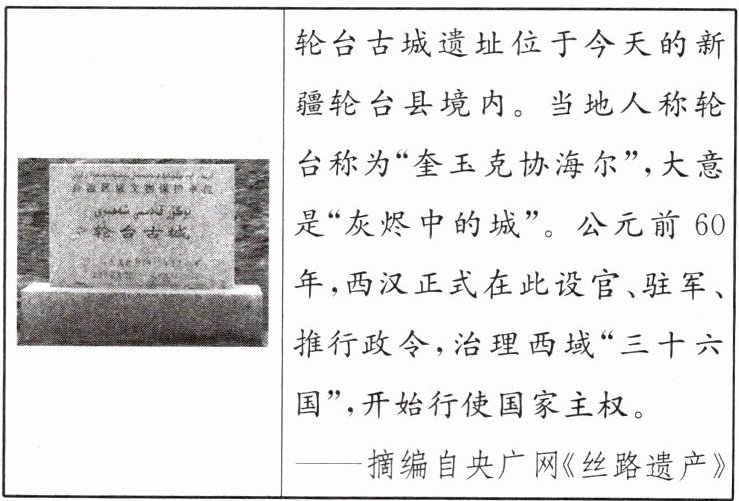 轮台古城
轮台古城遗址位于今天的新
疆轮台县境内。当地人称轮
台称为“奎玉克协海尔”,大意
是“灰烬中的城”。公元前60
年,西汉正式在此设官、驻军、
推行政令,治理西域“三十六
国”,开始行使国家主权。
——摘编自央广网《丝路遗产》